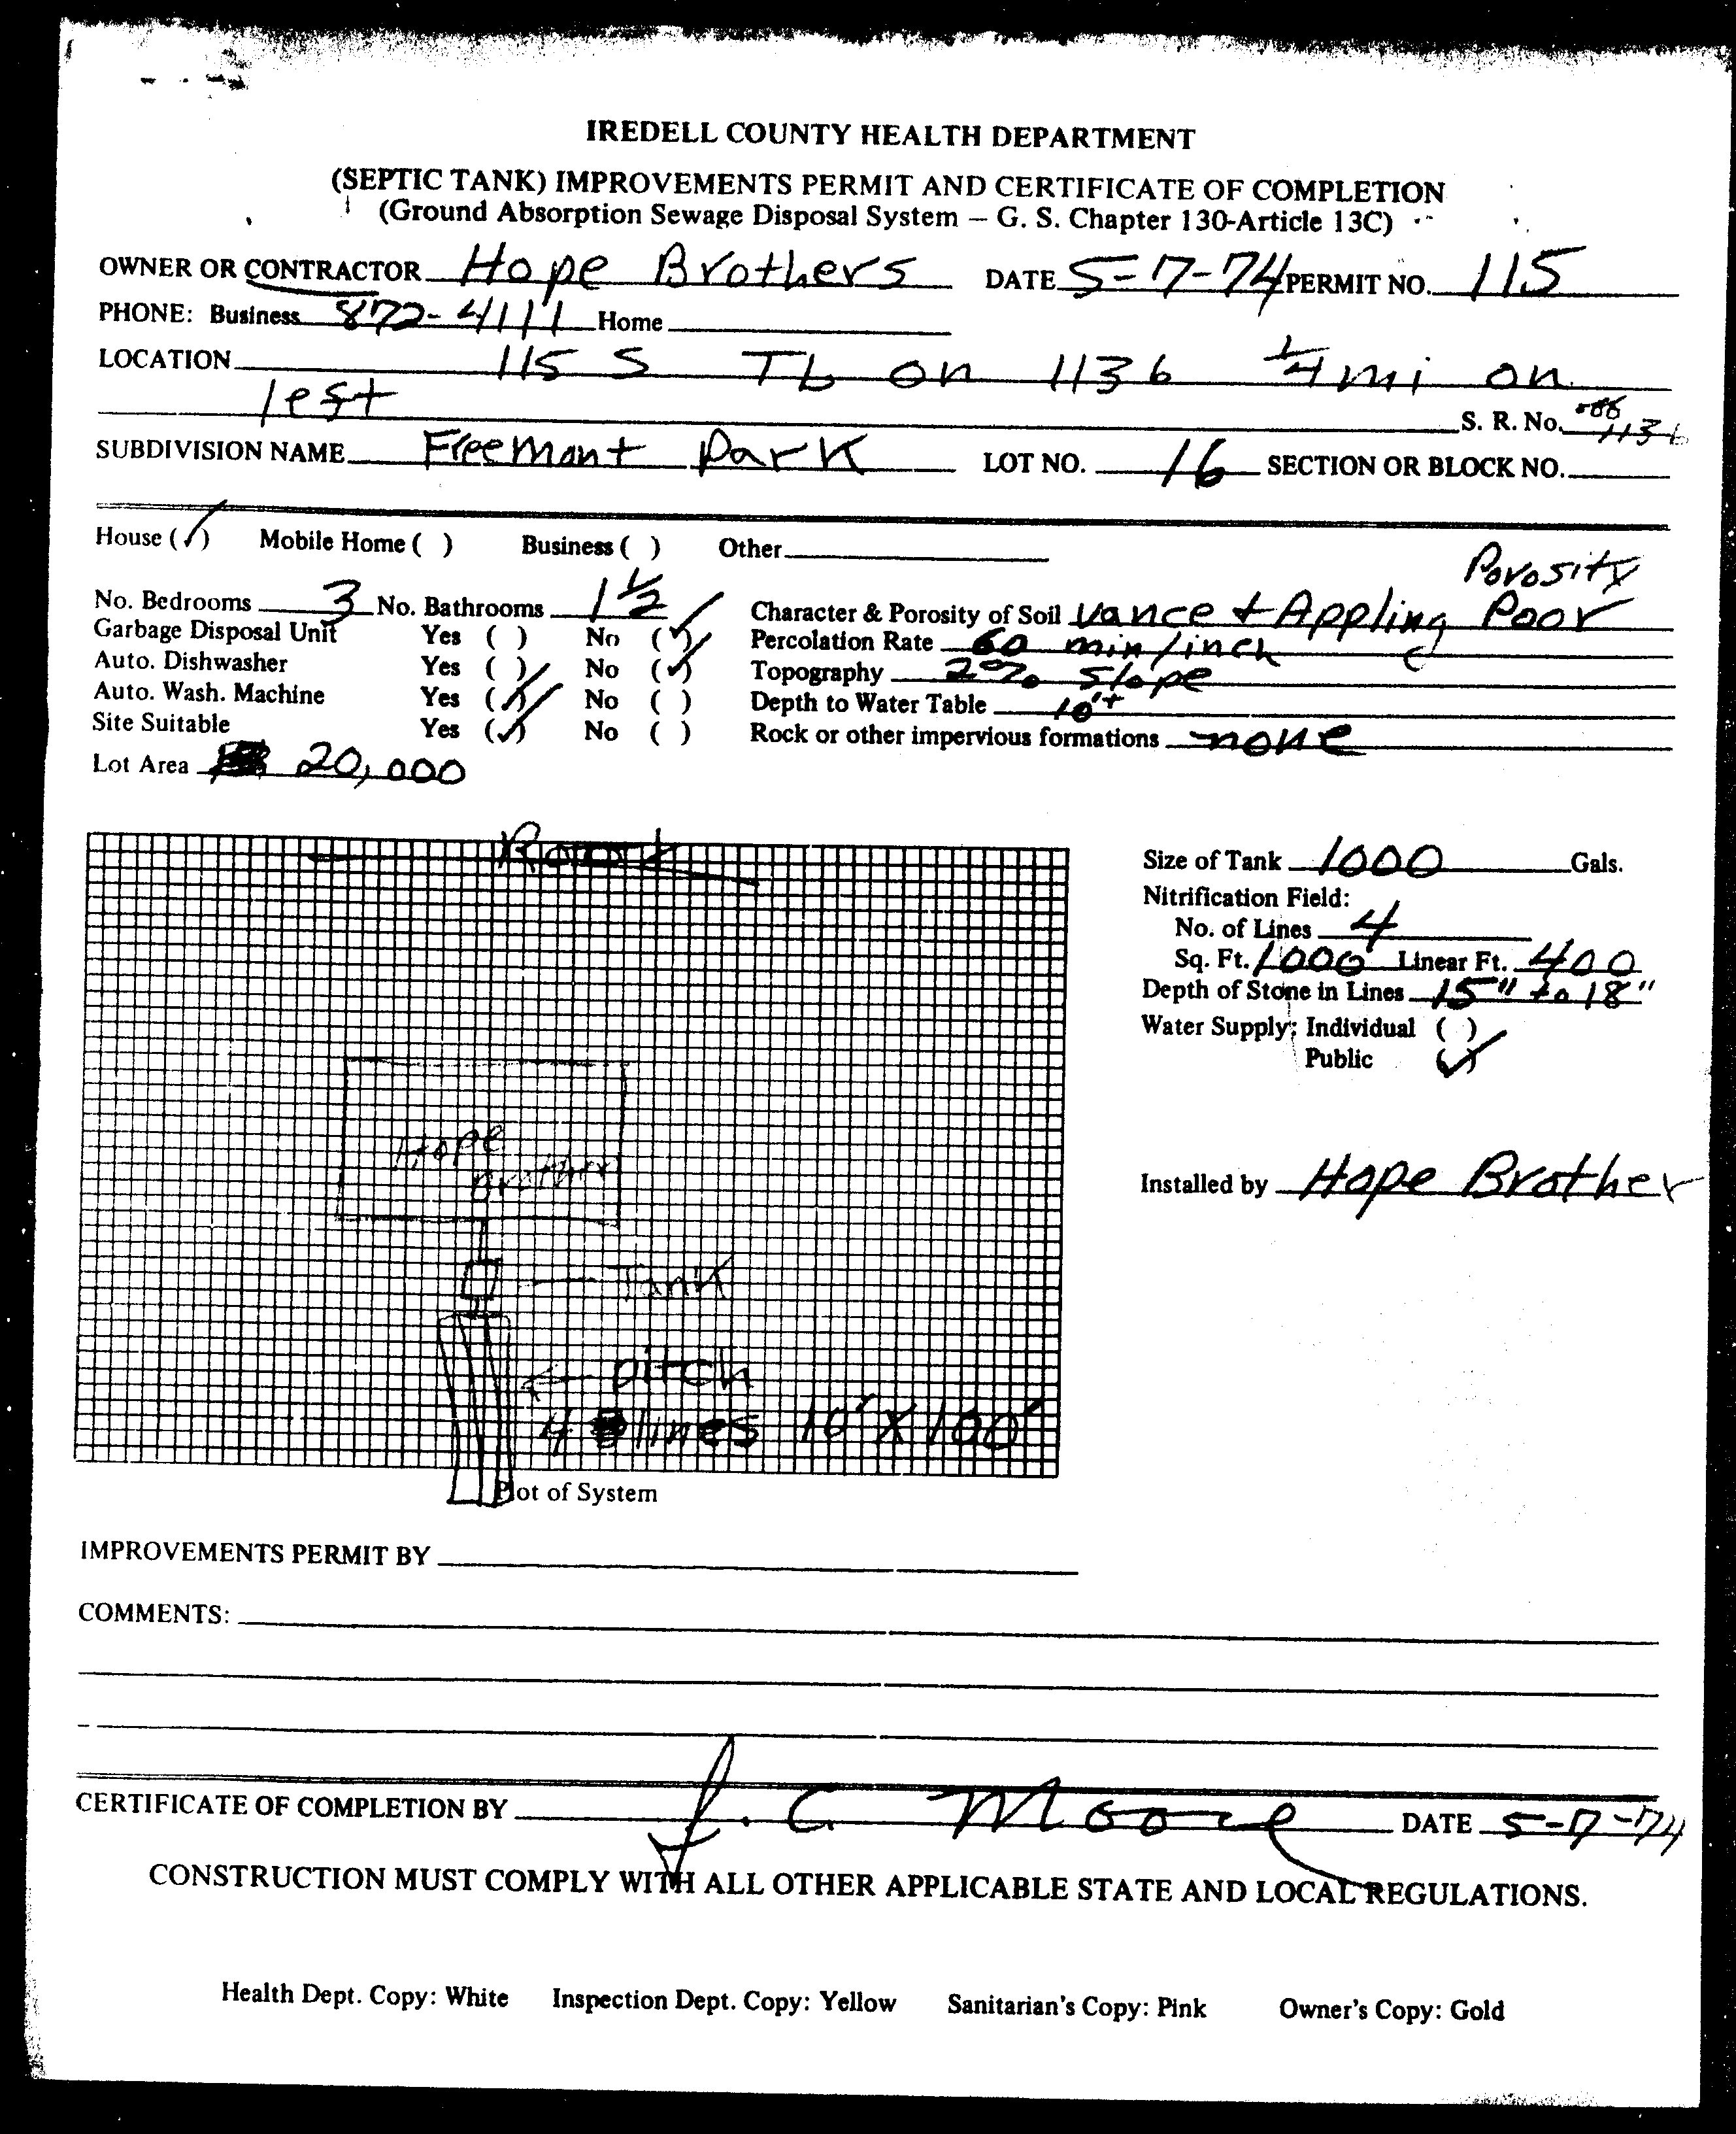 IREDELL COUNTY HEALTH DEPARTMENT
(SEPTIC TANK) IMPROVEMENTS PERMIT AND CERTIFICATE OF COMPLETION
(Ground Absorption Sewage Disposal System – G. S. Chapter 130-Article 13C)
OWNER OR CONTRACTOR Hope Brothers DATE 5-7-74 PERMIT NO. 115
PHONE: Business 872-4111 Home
LOCATION 115 S TL on 1136 1/4 mi on
left
S. R. No. 1136
SUBDIVISION NAME Freemont Park LOT NO. 16 SECTION OR BLOCK NO.
House (✓) Mobile Home ( ) Business ( ) Other
Porosity
No. Bedrooms 3 No. Bathrooms 1 1/2 Character & Porosity of Soil Vance + Appling Poor
Garbage Disposal Unit Yes ( ) No (✓) Percolation Rate 60 min/inch
Auto. Dishwasher Yes ( ) No (✓) Topography 2% slope
Auto. Wash. Machine Yes (✓) No ( ) Depth to Water Table 10'+
Site Suitable Yes (✓) No ( ) Rock or other impervious formations none
Lot Area 20,000
Road
Size of Tank 1000 Gals.
Nitrification Field:
No. of Lines 4
Sq. Ft. 1000 Linear Ft. 400
Depth of Stone in Lines 15" to 18"
Water Supply: Individual ( )
Public (✓)
Hope
Brothers
Installed by Hope Brother
Tank
ditch
4 lines 10' X 100'
Plot of System
IMPROVEMENTS PERMIT BY
COMMENTS:
CERTIFICATE OF COMPLETION BY J. C. Moore DATE 5-7-74
CONSTRUCTION MUST COMPLY WITH ALL OTHER APPLICABLE STATE AND LOCAL REGULATIONS.
Health Dept. Copy: White Inspection Dept. Copy: Yellow Sanitarian's Copy: Pink Owner's Copy: Gold